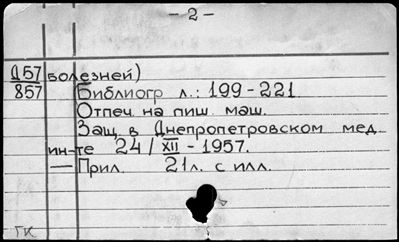 - 2 -
Д57 болезней)
857 Библиогр л.: 199-221
Отпеч на пиш маш.
Защ в Днепропетровском мед
ин-те 24/XII - 1957.
— Прил. 21л. с илл.
ГК